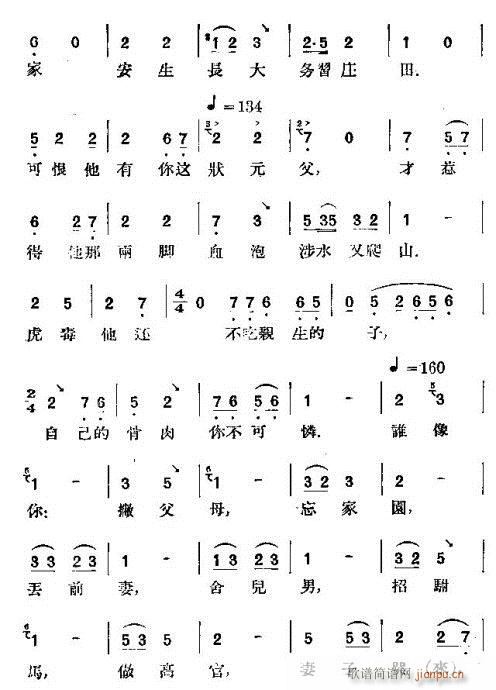 6 0 | 2 2 | 1 2 3 | 2·5 2 | 1 0 |
家 安 生 長 大 务 習 庄 田.
♩=134
5 2 2 | 2 6 7 | 2 2 | 7 0 | 7 5 7 |
可 恨 他 有 你 这 狀 元 父, 才 惹
6 2 7 | 2 2 | 7 3 | 5 35 3 2 | 1 - |
得 他 那 兩 脚 血 泡 涉 水 又 爬 山.
2 5 | 2 7 | 4/4 0 7 7 6 7 6 5 | 0 5 2 6 5 6 |
虎 毒 他 还 不 吃 親 生 的 子,
♩=160
2/4 2 7 6 | 2 2 | 7 6 5 6 | 1 - | 2 3 |
自 己 的 骨 肉 你 不 可 憐. 誰 像
1 - | 3 5 | 1 - | 3 2 3 | 1 - |
你: 撇 父 母, 忘 家 園,
3 3 2 3 | 1 - | 3 3 2 3 | 1 - | 2 5 |
丟 前 妻, 舍 兒 男, 招 駙
1 - | 5 5 3 | 1 - | 2 2 | 2 2 7 |
馬, 做 高 官, 妻 子
歌谱简谱网
jianpu.cn